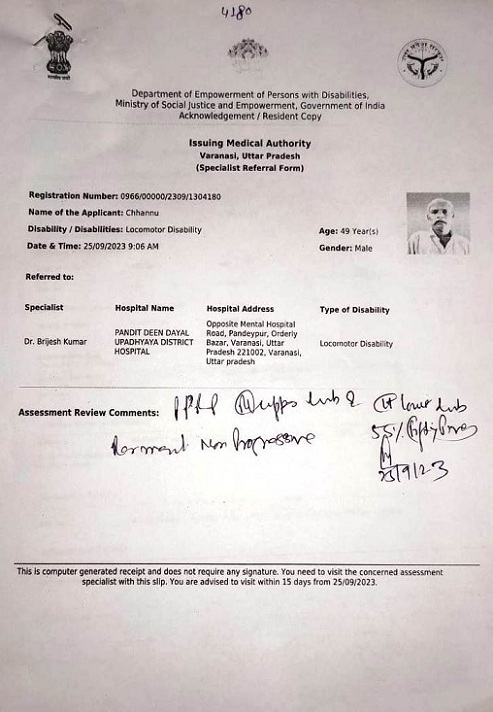 4180
Department of Empowerment of Persons with Disabilities,
Ministry of Social Justice and Empowerment, Government of India
Acknowledgement / Resident Copy
Issuing Medical Authority
Varanasi, Uttar Pradesh
(Specialist Referral Form)
Registration Number: 0966/00000/2309/1304180
Name of the Applicant: Chhannu
Disability / Disabilities: Locomotor Disability
Age: 49 Year(s)
Date & Time: 25/09/2023 9:06 AM
Gender: Male
Referred to:
Specialist Hospital Name Hospital Address Type of Disability
Dr. Brijesh Kumar
PANDIT DEEN DAYAL
UPADHYAYA DISTRICT
HOSPITAL
Opposite Mental Hospital
Road, Pandeypur, Orderly
Bazar, Varanasi, Uttar
Pradesh 221002, Varanasi,
Uttar pradesh
Locomotor Disability
Assessment Review Comments: PPRP upper limb & lower limb
55% (Fifty
Permanent Non Progressive
25/9/23
This is computer generated receipt and does not require any signature. You need to visit the concerned assessment
specialist with this slip. You are advised to visit within 15 days from 25/09/2023.